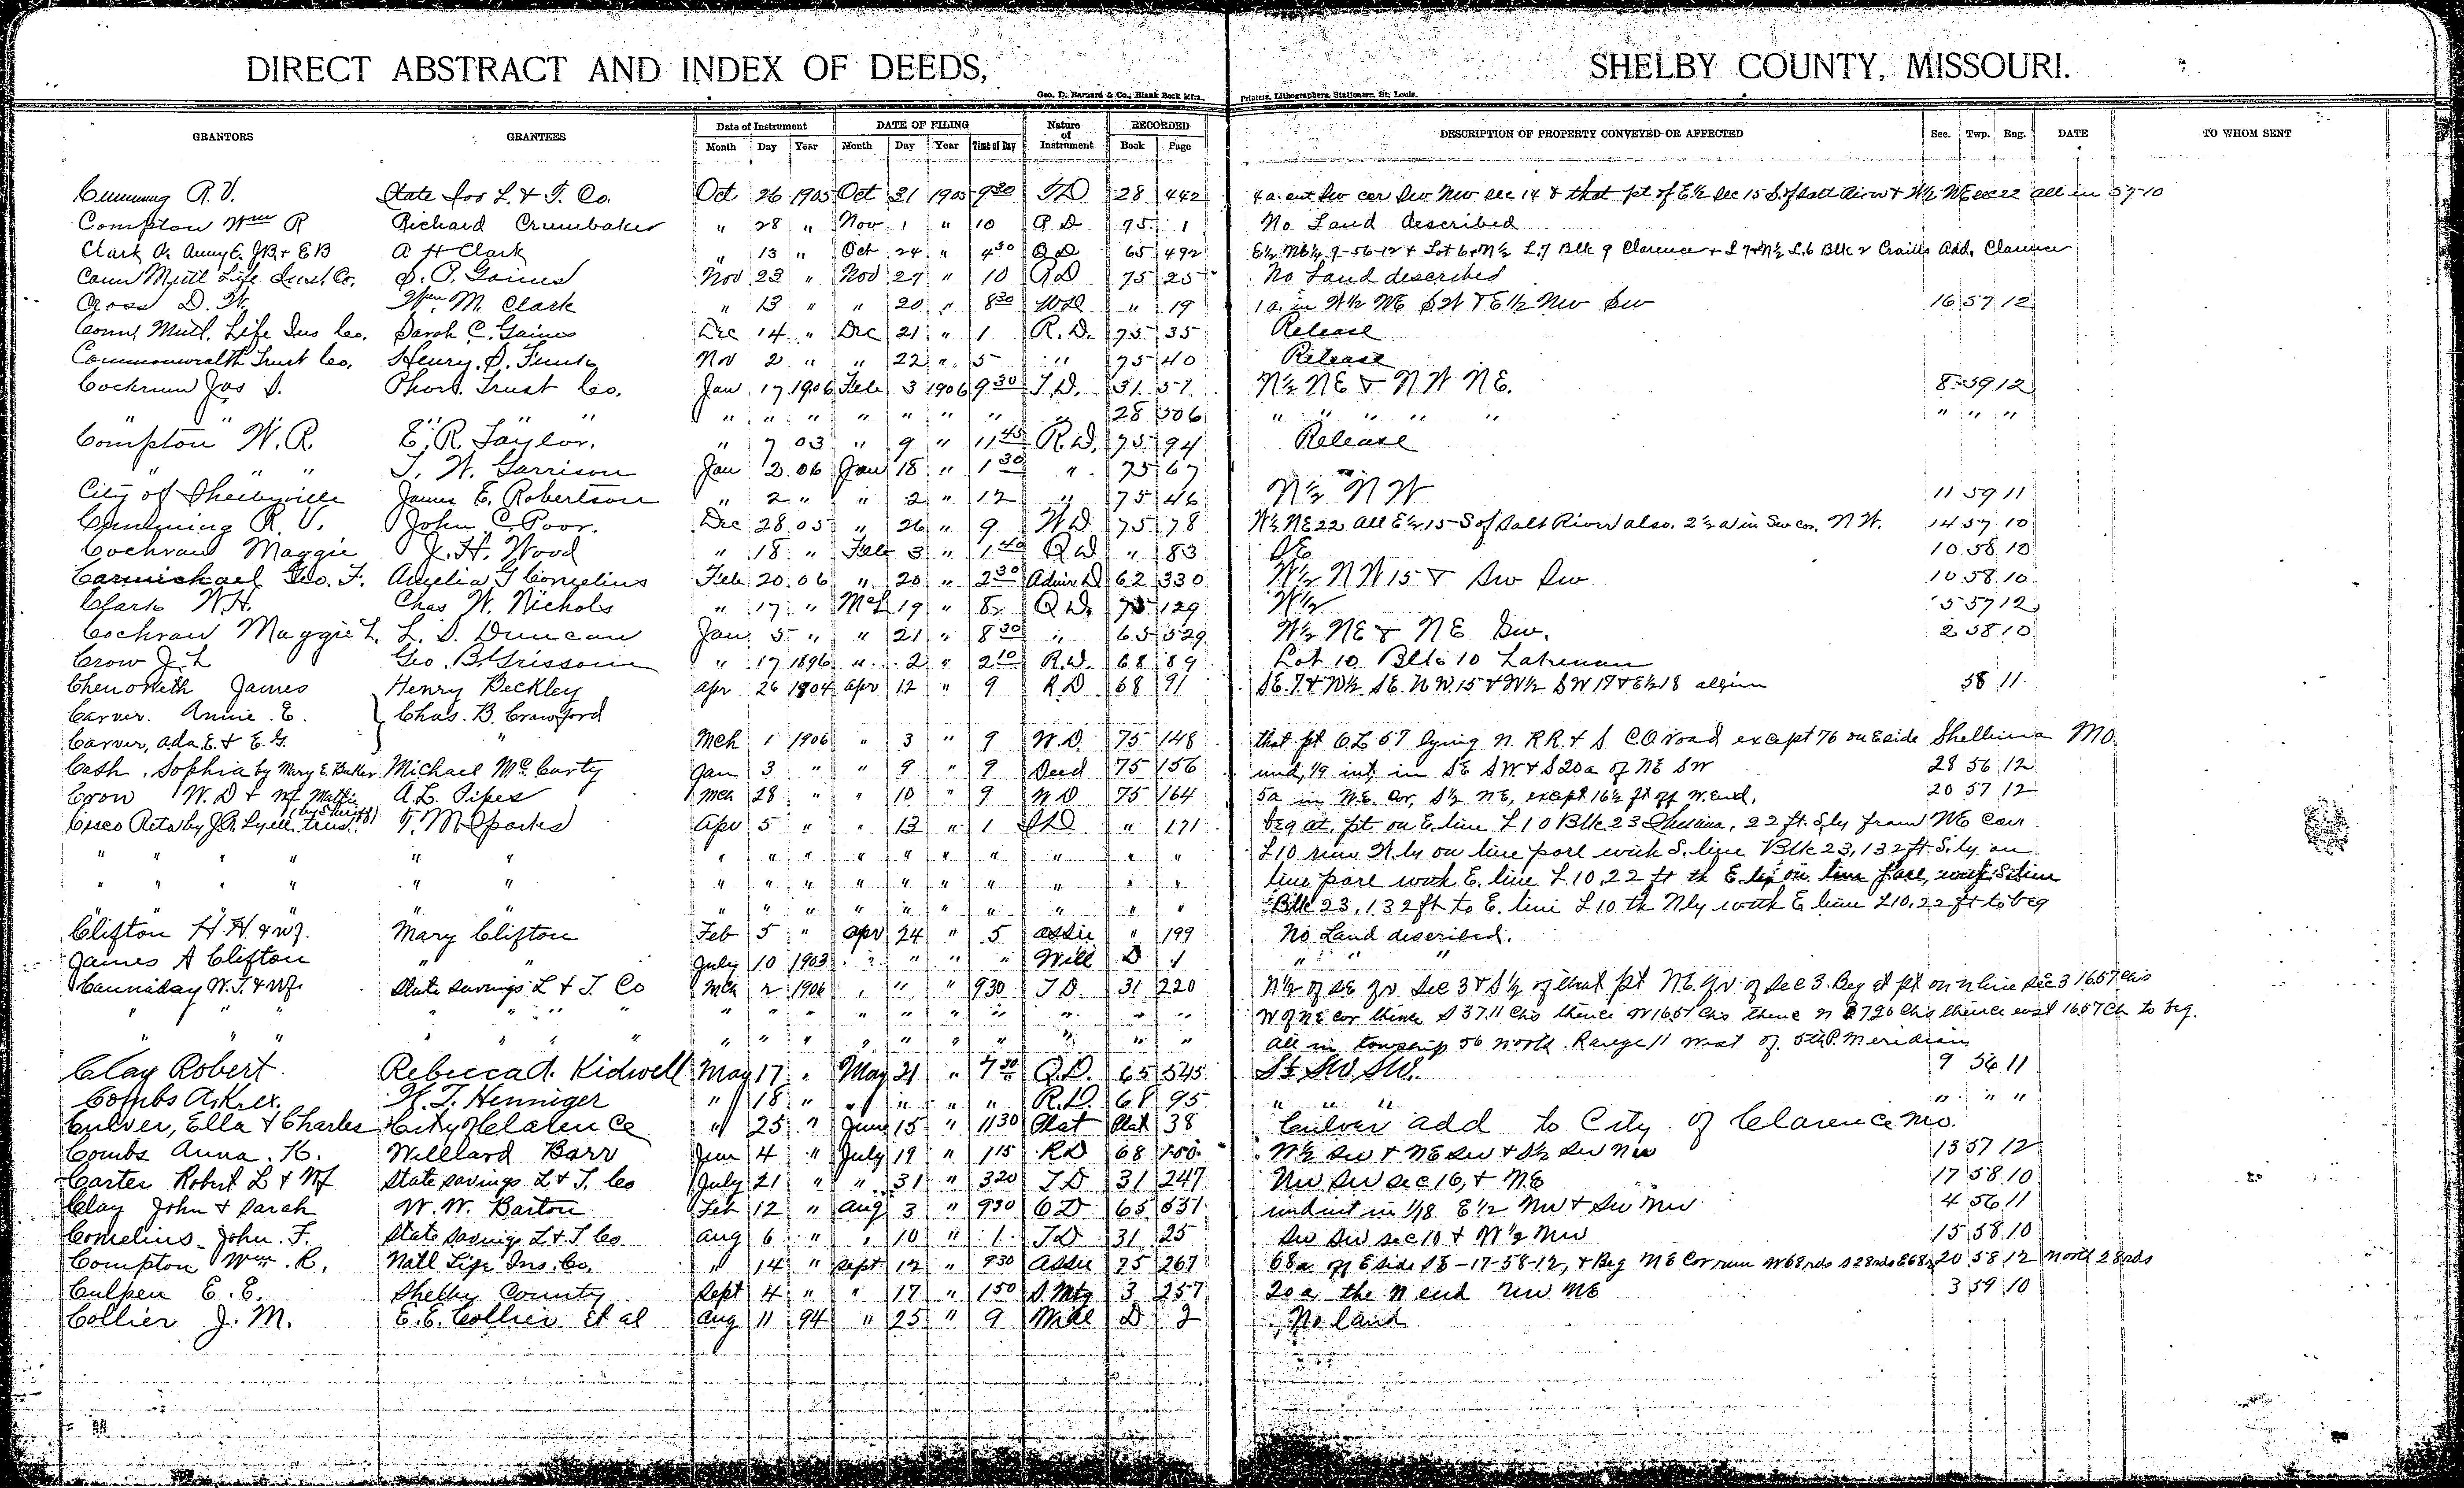 DIRECT ABSTRACT AND INDEX OF DEEDS, SHELBY COUNTY, MISSOURI.
Geo. D. Barnard & Co., Blank Book Mfrs. Printers, Lithographers, Stationers, St. Louis.
GRANTORS GRANTEES Date of Instrument DATE OF FILING Nature of Instrument RECORDED DESCRIPTION OF PROPERTY CONVEYED OR AFFECTED Sec. Twp. Rng. DATE TO WHOM SENT
Month Day Year Month Day Year Time of Day Book Page
Cumming R. V. State L. & T. Co. Oct 26 1905 Oct 31 1905 9 30 T D 28 442 4 a. Sw cor Sw Nw Sec 14 & that pt of E½ Sec 15 S. of Salt River & W½ NE sec 22 all in 57-10
Compton Wm R Richard Crumbaker " 28 " Nov 1 " 10 R D 75 1 No Land described
Clark A. Amy E. J.B. & E B A H Clark " 13 " Oct 24 " 4 30 Q D 65 492 E½ NE¼ 9-56-12 & Lot 6 & N½ L.7 Blk 9 Clarence & L 7 & N½ L.6 Blk 2 Add, Clarence
Conn Mutl Life Inst. Co. S. P. Gaines Nov 23 " Nov 27 " 10 R D 75 25 No Land described
Cross D. W. Wm. M. Clark " 13 " " 20 " 8 30 W D " 19 1 a. in W½ NE SW & E½ Nw Sw 16 57 12
Conn. Mutl. Life Ins Co. Sarah C. Gaines Dec 14 " Dec 21 " 1 R. D. 75 35 Release
Commonwealth Trust Co. Henry S. Funk Nov 2 " " 22 " 5 " 75 40 Release
Cochrun Jas S. Trust Co. Jan 17 1906 Feb 3 1906 9 30 T. D. 31 57 N½ NE & N W NE. 8 59 12
" " " " " " " " " " " " " 28 306 " " " " " " " "
Compton W. R. E. R. Taylor. " 7 03 " 9 " 11 45 R. D. 75 94 Release
" " " T. W. Garrison Jan 2 06 Jan 18 " 1 30 " 75 67 "
City of Shelbyville James E. Robertson " 2 " " 2 " 12 " 75 46 N½ N W 11 59 11
Cumming R. V. John C. Poor. Dec 28 05 " 26 " 9 W D 75 78 W½ NE 22 all E½ 15 S of Salt River also. 2½ a in Sw cor. N W. 14 57 10
Cochran Maggie J. H. Wood " 18 " Feb 3 " 1 40 Q D " 83 SE 10 58 10
Carmichael Geo. F. Angelia G Cornelius Feb 20 06 " 20 " 2 30 Admr D 62 330 W½ N W 15 & Sw Sw 10 58 10
Clark W. H. Chas W. Nichols " 17 " Mch 19 " 8 Q D. 75 129 W½ 5 57 12
Cochran Maggie L. L. S. Duncan Jan 5 " " 21 " 8 30 " 65 529 W½ NE & NE Sw. 2 58 10
Crow J. L Geo. B. Grissom " 17 1896 " 2 " 2 10 R. D. 68 89 Lot 10 Blk 10 Lakenan
Chenoweth James Henry Beckley Apr 26 1904 Apr 12 " 9 R D 68 91 SE. 7 & W½ SE. N W. 15 & W½ S W 17 & E½ 18 all in 58 11
Carver. Annie. E. } Chas. B. Crawford
Carver, Ada, E. & E. G. " Mch 1 1906 " 3 " 9 W. D 75 148 that pt O.L 57 lying N. R R. & S CO road except 76 on E side Shelbina Mo
Cash, Sophia by Mary E. Baker Michael McCarty Jan 3 " " 9 " 9 Deed 75 156 und, 1/9 int, in SE SW & S 20 a of NE SW 28 56 12
Crow W. D & wf Mattie A. L. Pipes Mch 28 " " 10 " 9 W D 75 164 5a in N.E. Cor, S½ NE, except 16½ ft off W. end. 20 57 12
Cisco Reta by J. R. Lyell, trus. (by Sheriff) T. M. Sparks Apr 5 " " 13 " 1 " 171 beg at. pt on E. line L 10 Blk 23 Shelbina, 22 ft. Sly from NE Cor
" " " " " " " " " " " " " " " " L 10 run W. ly on line parl with S. line Blk 23, 132 ft S. ly. on
" " " " " " " " " " " " " " " " line parl with E. line L 10, 22 ft th E. on line parl, with S line
" " " " " " " " " " " " " " Blk 23, 132 ft to E. line L 10 th Nly with E line L 10, 22 ft to beg
Clifton H. H. & wf. Mary Clifton Feb 5 " Apr 24 " 5 Assn " 199 No Land described.
James A Clifton " " July 10 1903 " " " " Will D 1 " " "
Canniday W. T. & wf. State Savings L & T. Co Mch 2 1906 " " " 9 30 T D. 31 220 N½ of SE qr Sec 3 & S½ of that pt N E. qr. of Sec 3. Beg at pt on n line Sec 3 16.57 chs
" " " " " " " " " " " " " " " " W of N E cor thence S 37.11 chs thence W 16.57 chs thence N 37.20 chs thence east 16.57 Ch to beg.
" " " " " " " " " " " " " " " " all in township 56 north Range 11 west of 5th P. Meridian
Clay Robert. Rebecca A. Kidwell May 17 " May 21 " 7 30 Q. D. 65 545 S½ SW SW. 9 56 11
Combs A. K. ex. W. T. Henniger " 18 " " " " " R. D. 68 95 " " " " " "
Culver, Ella & Charles City of Clarence " 25 " June 15 " 11 30 Plat Plat 38 Culver add to City of Clarence Mo.
Combs Anna. K. Willard Barr Jun 4 " July 19 " 1 15 R D 68 100 N½ Sw & NE Sw & S½ Sw Nw 13 57 12
Carter Robert L & Wf State Savings L & T. Co July 21 " " 31 " 3 20 T D 31 247 Nw Sw sec 16, & NE 17 58 10
Clay John & Sarah W. W. Barton Feb 12 " Aug 3 " 9 30 Q D 65 551 und int in 1/18 E½ NW & Sw Nw 4 56 11
Cornelius John. F. State Savings L & T Co Aug 6 " " 10 " 1 T D 31 25 Sw Sw sec 10 & W½ NW 15 58 10
Compton Wm. R. Natl Life Ins. Co. " 14 " Sept 12 " 9 30 Assn 75 267 68 a off E side SE -17-58-12, & Beg N E Cor run W 68 rds S 28 rds E 68 r 20 58 12 North 28 rds
Culpen E. E. Shelby County Sept 4 " " 17 " 1 50 S. Mtg 3 257 20 a the N end NW NE 3 59 10
Collier J. M. E. E. Collier et al Aug 11 94 " 25 " 9 Will D 2 No land